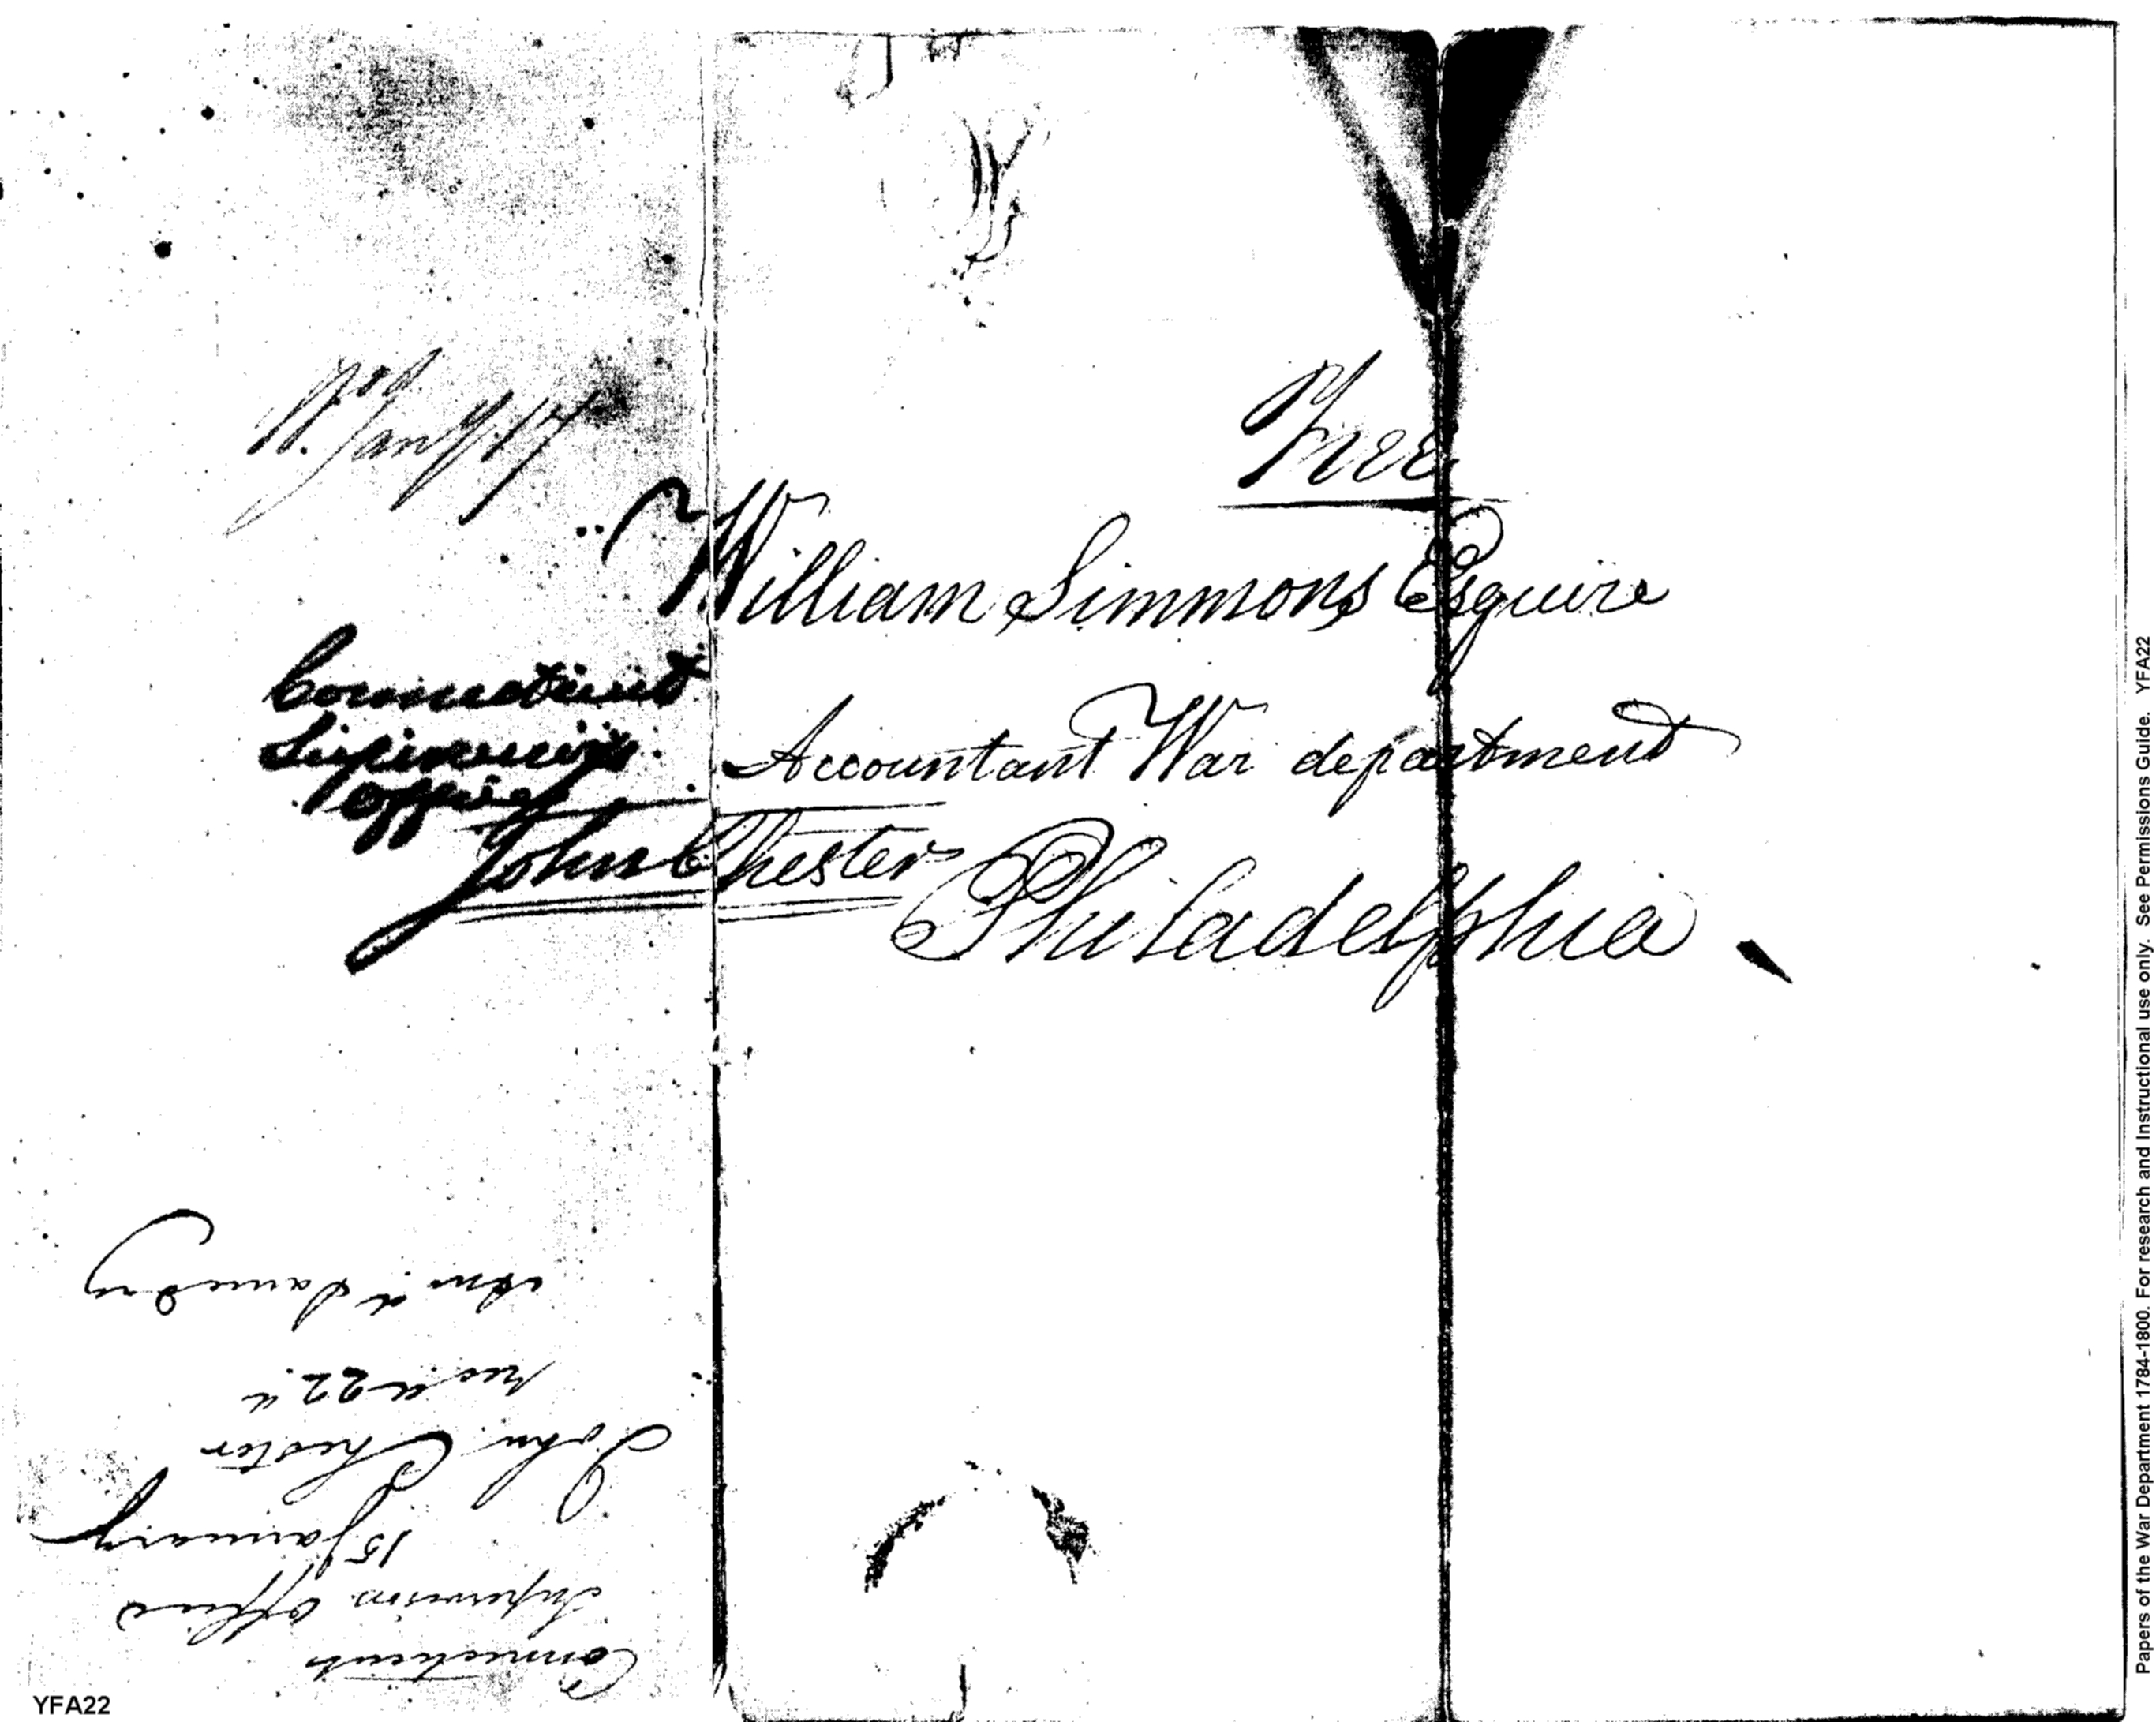 Free
William Simmons Esquire
Accountant War department
Philadelphia
Connecticut
Supervisors
Office
John Chester
Jany 17
Connecticut
Supervisors Office
15 January
John Chester
recd 22d
Ansd Same day
YFA22
Papers of the War Department 1784-1800. For research and Instructional use only. See Permissions Guide. YFA22